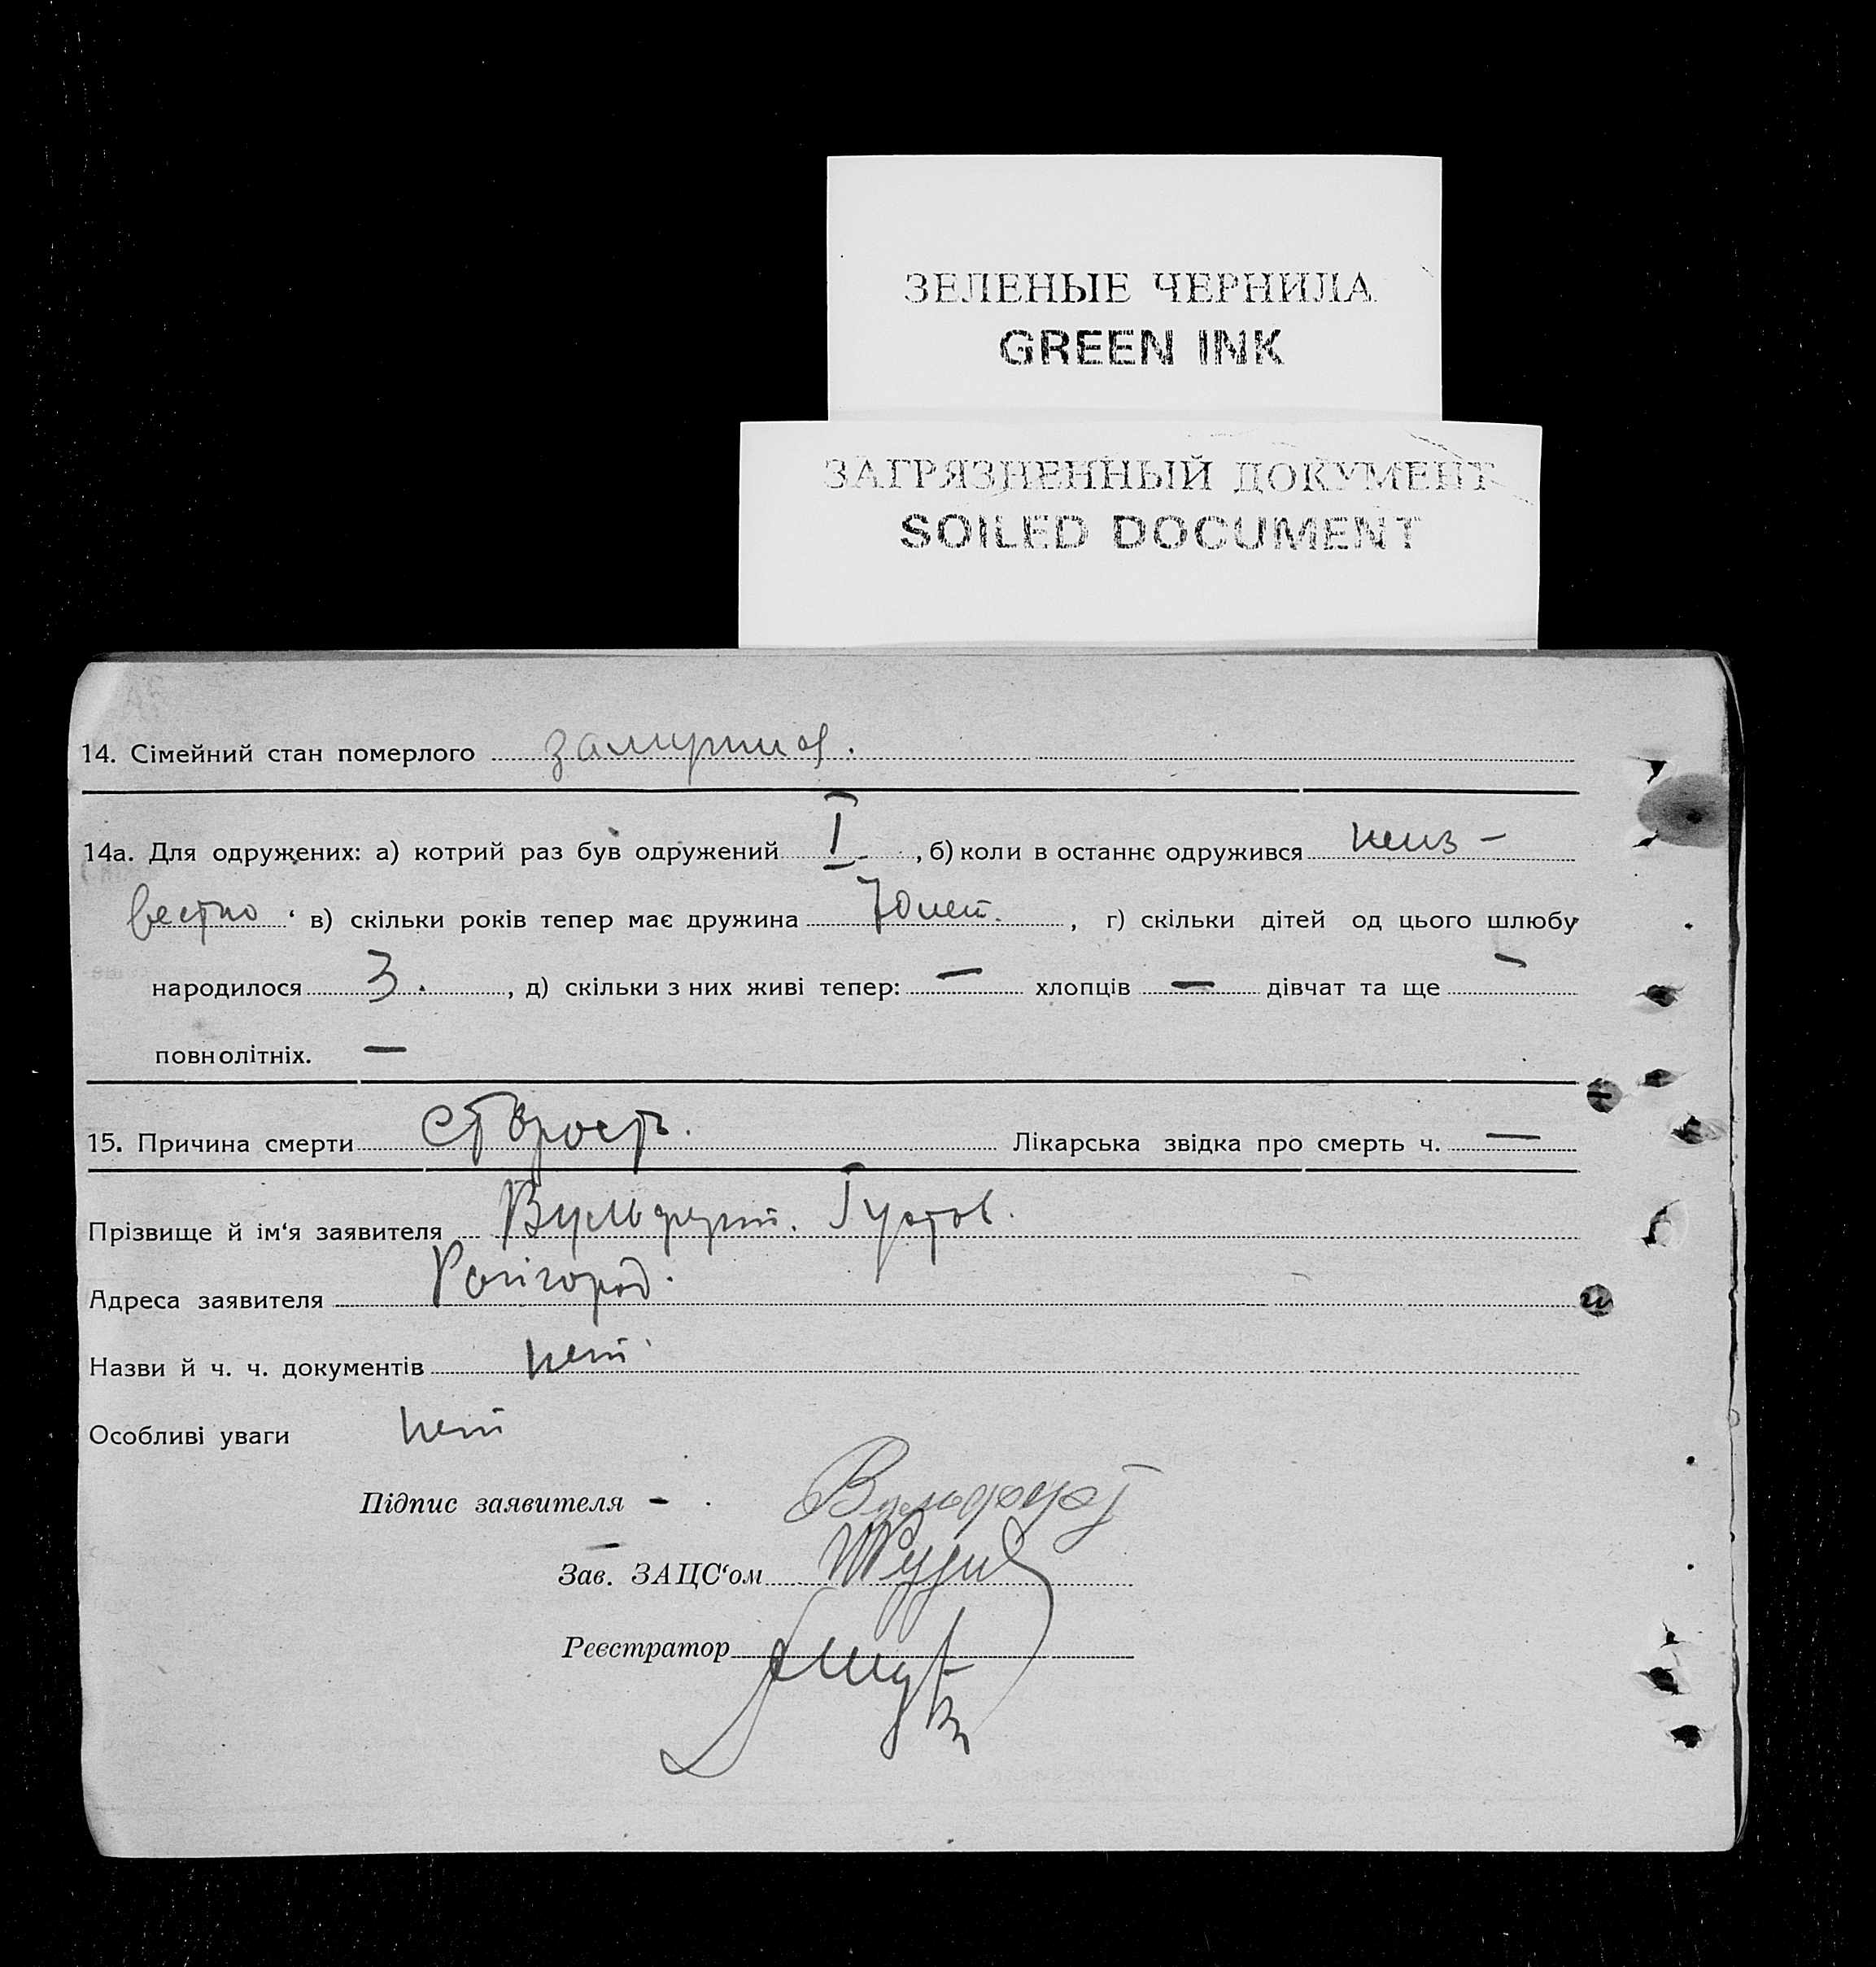 ЗЕЛЕНЫЕ ЧЕРНИЛА
GREEN INK
ЗАГРЯЗНЕННЫЙ ДОКУМЕНТ
SOILED DOCUMENT
14. Сімейний стан померлого
14а. Для одружених: а) котрий раз був одружений I, б) коли в останнє одружився неиз-
вестно, в) скільки років тепер має дружина 70 лет., г) скільки дітей од цього шлюбу
народилося 3., д) скільки з них живі тепер: — хлопців — дівчат та ще —
повнолітніх. —
15. Причина смерти старость. Лікарська звідка про смерть ч. —
Прізвище й ім‘я заявителя Вульферт. Густов.
Адреса заявителя
Назви й ч. ч. документів нет
Особливі уваги нет
Підпис заявителя - Вульферт
Зав. ЗАЦС‘ом
Реєстратор